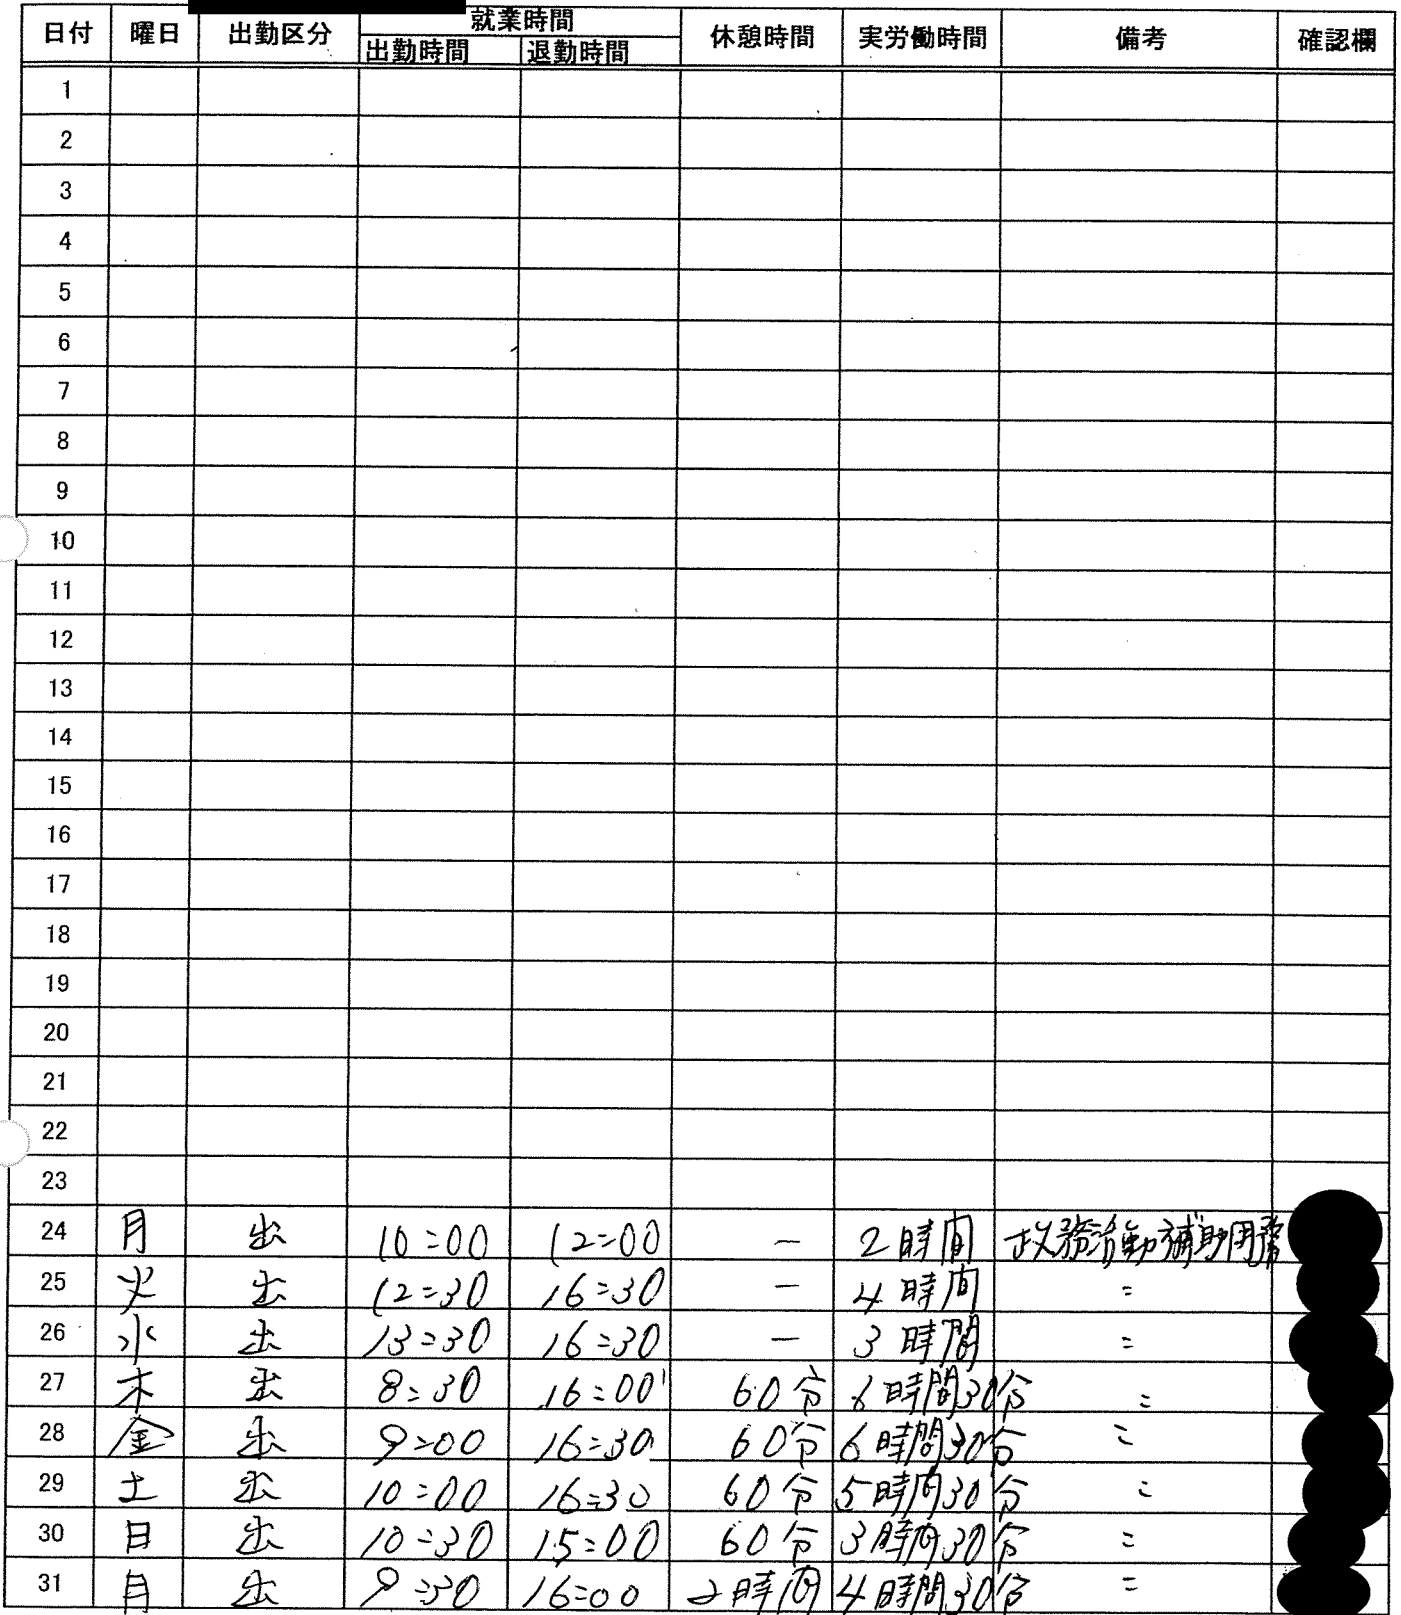 日付 曜日 出勤区分 就業時間 休憩時間 実労働時間 備考 確認欄
出勤時間 退勤時間
1
2
3
4
5
6
7
8
9
10
11
12
13
14
15
16
17
18
19
20
21
22
23
24 月 出 10:00 12:00 － 2時間 政務活動補助用務
25 火 出 12:30 16:30 － 4時間 〃
26 水 出 13:30 16:30 － 3時間 〃
27 木 出 8:30 16:00 60分 6時間30分 〃
28 金 出 9:00 16:30 60分 6時間30分 〃
29 土 出 10:00 16:30 60分 5時間30分 〃
30 日 出 10:30 15:00 60分 3時間30分 〃
31 月 出 9:30 16:00 2時間 4時間30分 〃